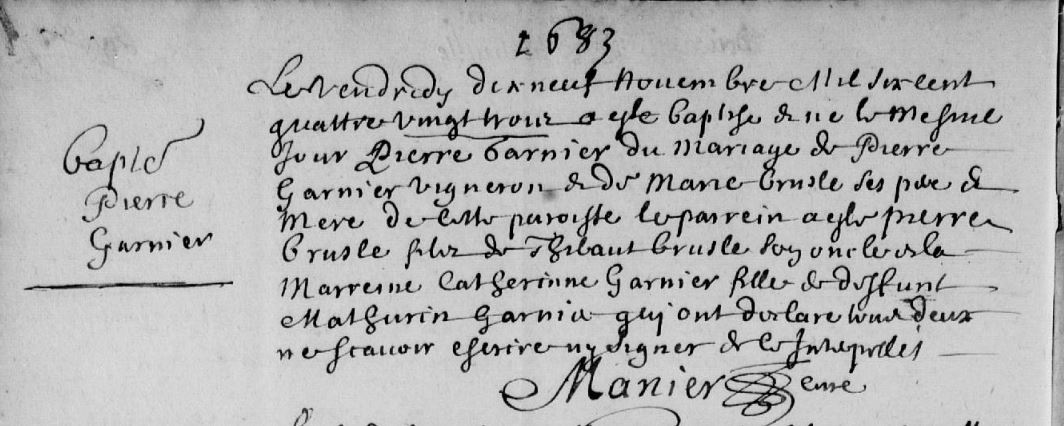 1683
Le Vendredy dix neuf Novembre Mil six cent
quattre vingt trois a este baptise & ne le Mesme
Jour Pierre Garnier du Mariage de Pierre
Garnier vigneron & de Marie brusle ses pere &
Mere de cette paroisse le parrein a este pierre
brusle filz de Thibaut brusle son oncle & la
Marreine Catherinne Garnier fille de deffunt
Mathurin Garnier qui ont declare tous deux
ne scavoir escrire ny signer de ce Interpelles
Manier cure
bapte
Pierre
Garnier